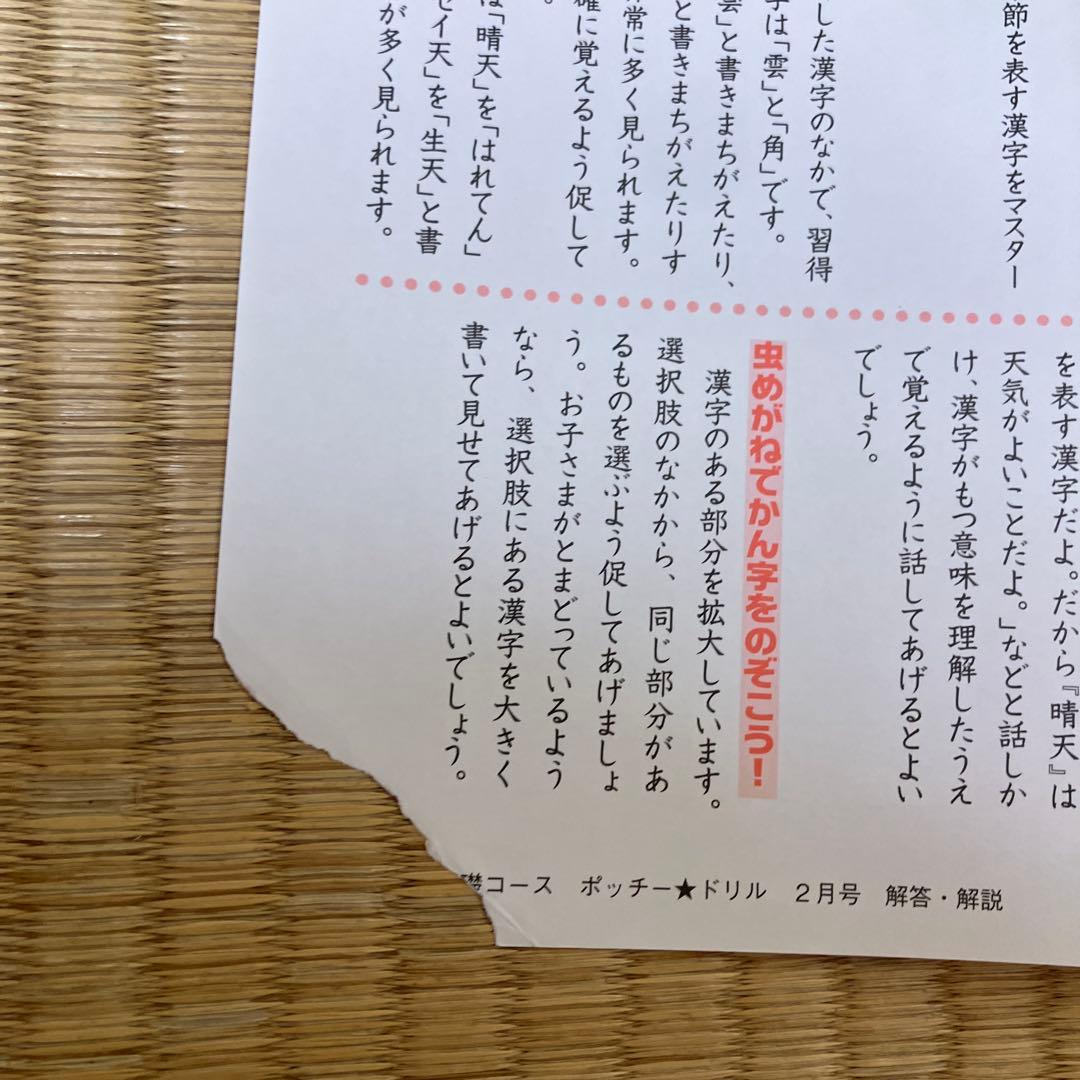 節を表す漢字をマスター
した漢字のなかで、習得
字は「雲」と「角」です。
雲」と書きまちがえたり、
と書きまちがえたりす
常に多く見られます。
確に覚えるよう促して
。
は「晴天」を「はれてん」
セイ天」を「生天」と書
が多く見られます。
を表す漢字だよ。だから『晴天』は
天気がよいことだよ。」などと話しか
け、漢字がもつ意味を理解したうえ
で覚えるように話してあげるとよい
でしょう。
虫めがねでかん字をのぞこう！
漢字のある部分を拡大しています。
選択肢のなかから、同じ部分があ
るものを選ぶよう促してあげましょ
う。お子さまがとまどっているよう
なら、選択肢にある漢字を大きく
書いて見せてあげるとよいでしょう。
礎コース ポッチー★ドリル 2月号 解答・解説